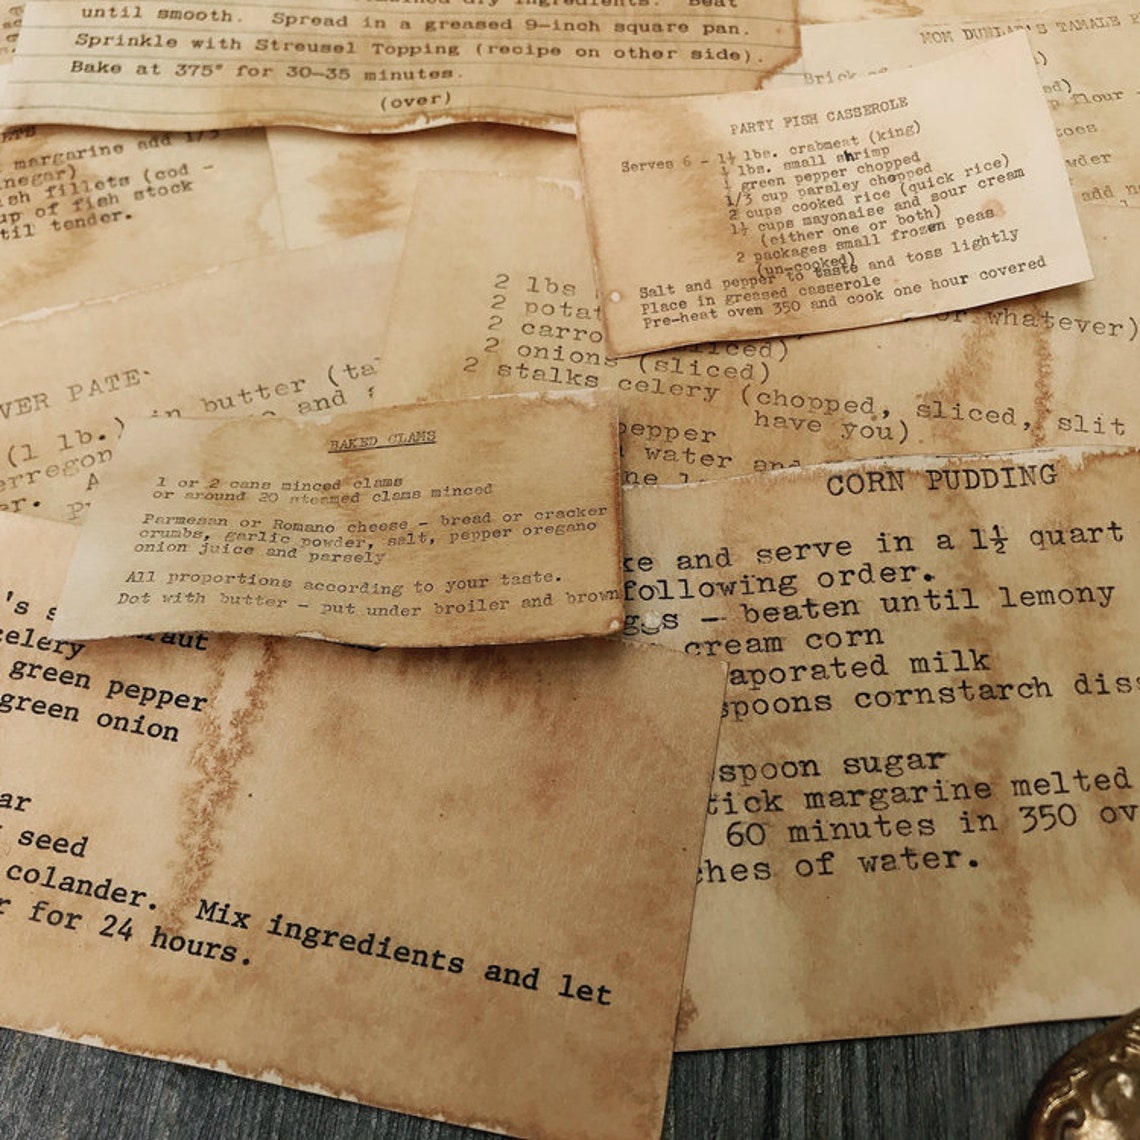 until smooth. Spread in a greased 9-inch square pan.
Sprinkle with Streusel Topping (recipe on other side).
Bake at 375° for 30-35 minutes.
(over)
MOM DUNLAP'S TAMALE
Brick
flour
margarine add 1/3
fillets (cod -
up of fish stock
til tender.
PARTY FISH CASSEROLE
Serves 6 - 1½ lbs. crabmeat (king)
lbs. small shrimp
green pepper chopped
1/3 cup parsley chopped
2 cups cooked rice (quick rice)
1½ cups mayonaise and sour cream
(either one or both)
2 packages small frozen peas
(un-cooked)
Salt and pepper to taste and toss lightly
Place in greased casserole
Pre-heat oven 350 and cook one hour covered
add
2 lbs
2 potat
2 carro
or whatever)
2 onions (sliced)
2 stalks celery (chopped, sliced, slit
have you)
pepper
water and
VER PATE
in butter (ta
and
(1 lb.)
erregon
BAKED CLAMS
1 or 2 cans minced clams
or around 20 steamed clams minced
Parmesan or Romano cheese - bread or cracker
crumbs, garlic powder, salt, pepper oregano
onion juice and parsely
All proportions according to your taste.
Dot with butter - put under broiler and brown
CORN PUDDING
ke and serve in a 1½ quart
following order.
ggs - beaten until lemony
cream corn
aporated milk
spoons cornstarch dis
spoon sugar
tick margarine melted
60 minutes in 350 ov
ches of water.
's
celery
green pepper
green onion
ar
seed
colander. Mix ingredients and let
r for 24 hours.